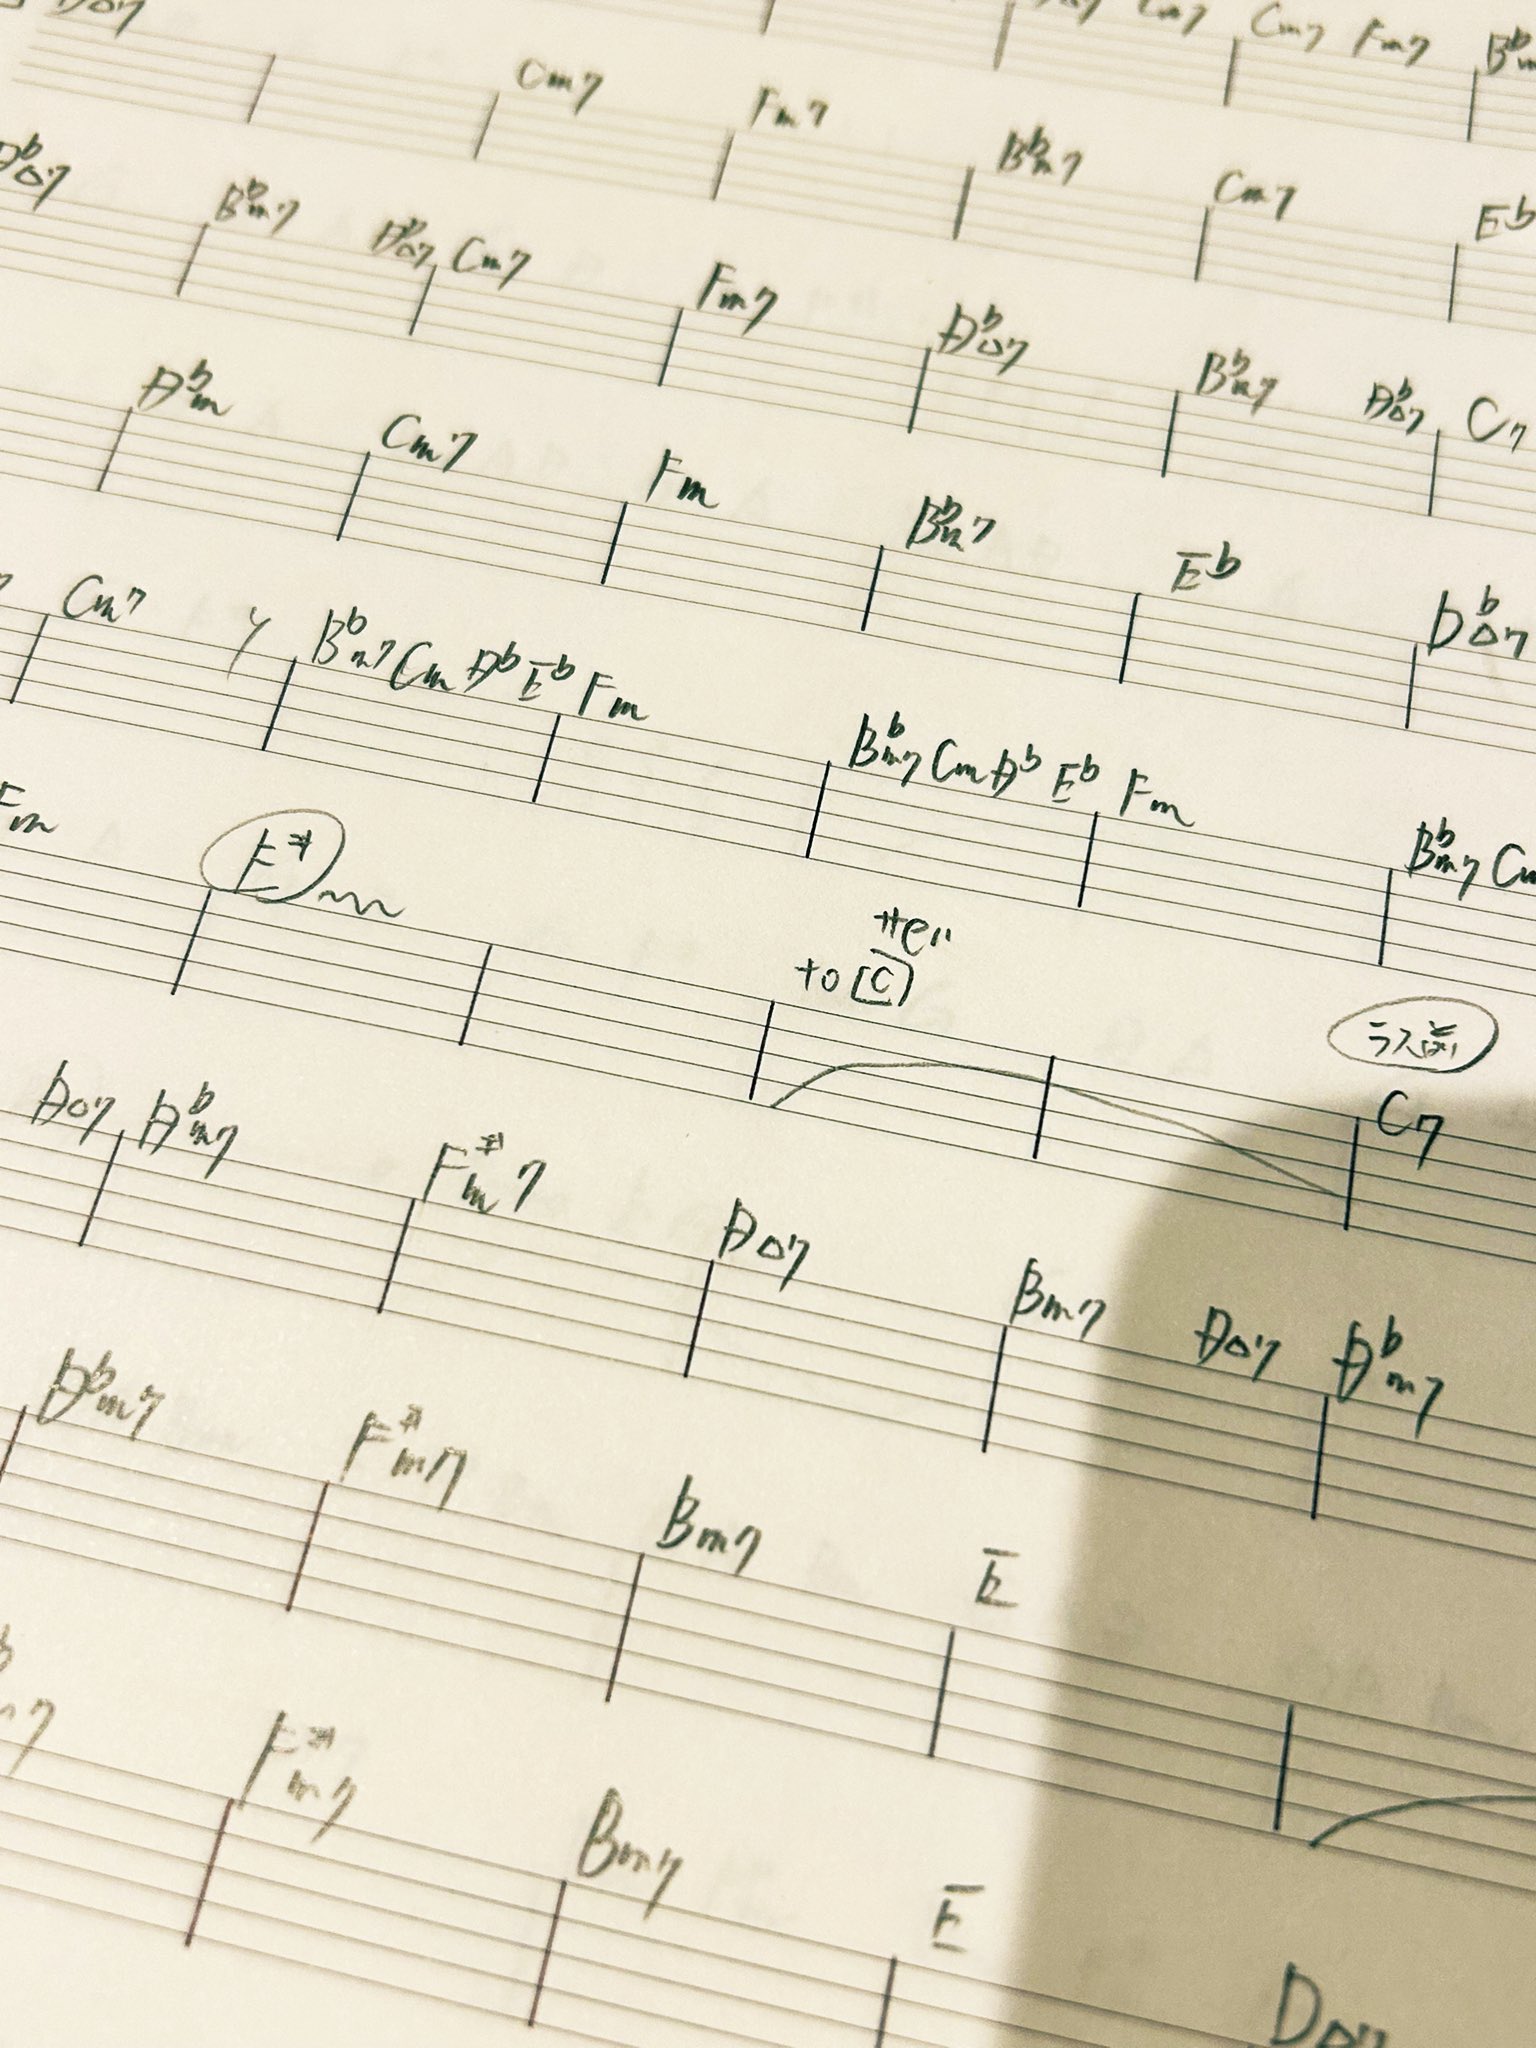 Cm7 Fm7 B♭m
Cm7 Fm7 B♭m7 Cm7 E♭
A♭△7 B♭m7 A♭△7 Cm7 Fm7 A♭△7 B♭m7 A♭△7 C7
A♭m Cm7 Fm B♭m7 E♭ D♭△7
Cm7 B♭m7 Cm A♭ E♭ Fm B♭m7 Cm A♭ E♭ Fm B♭m7 Cm
Fm F#
to C
C7
A△7 A♭m7 F#m7 A△7 Bm7 A△7 A♭m7
A♭m7 F#m7 Bm7 E
F#m7 Bm7 E D△7